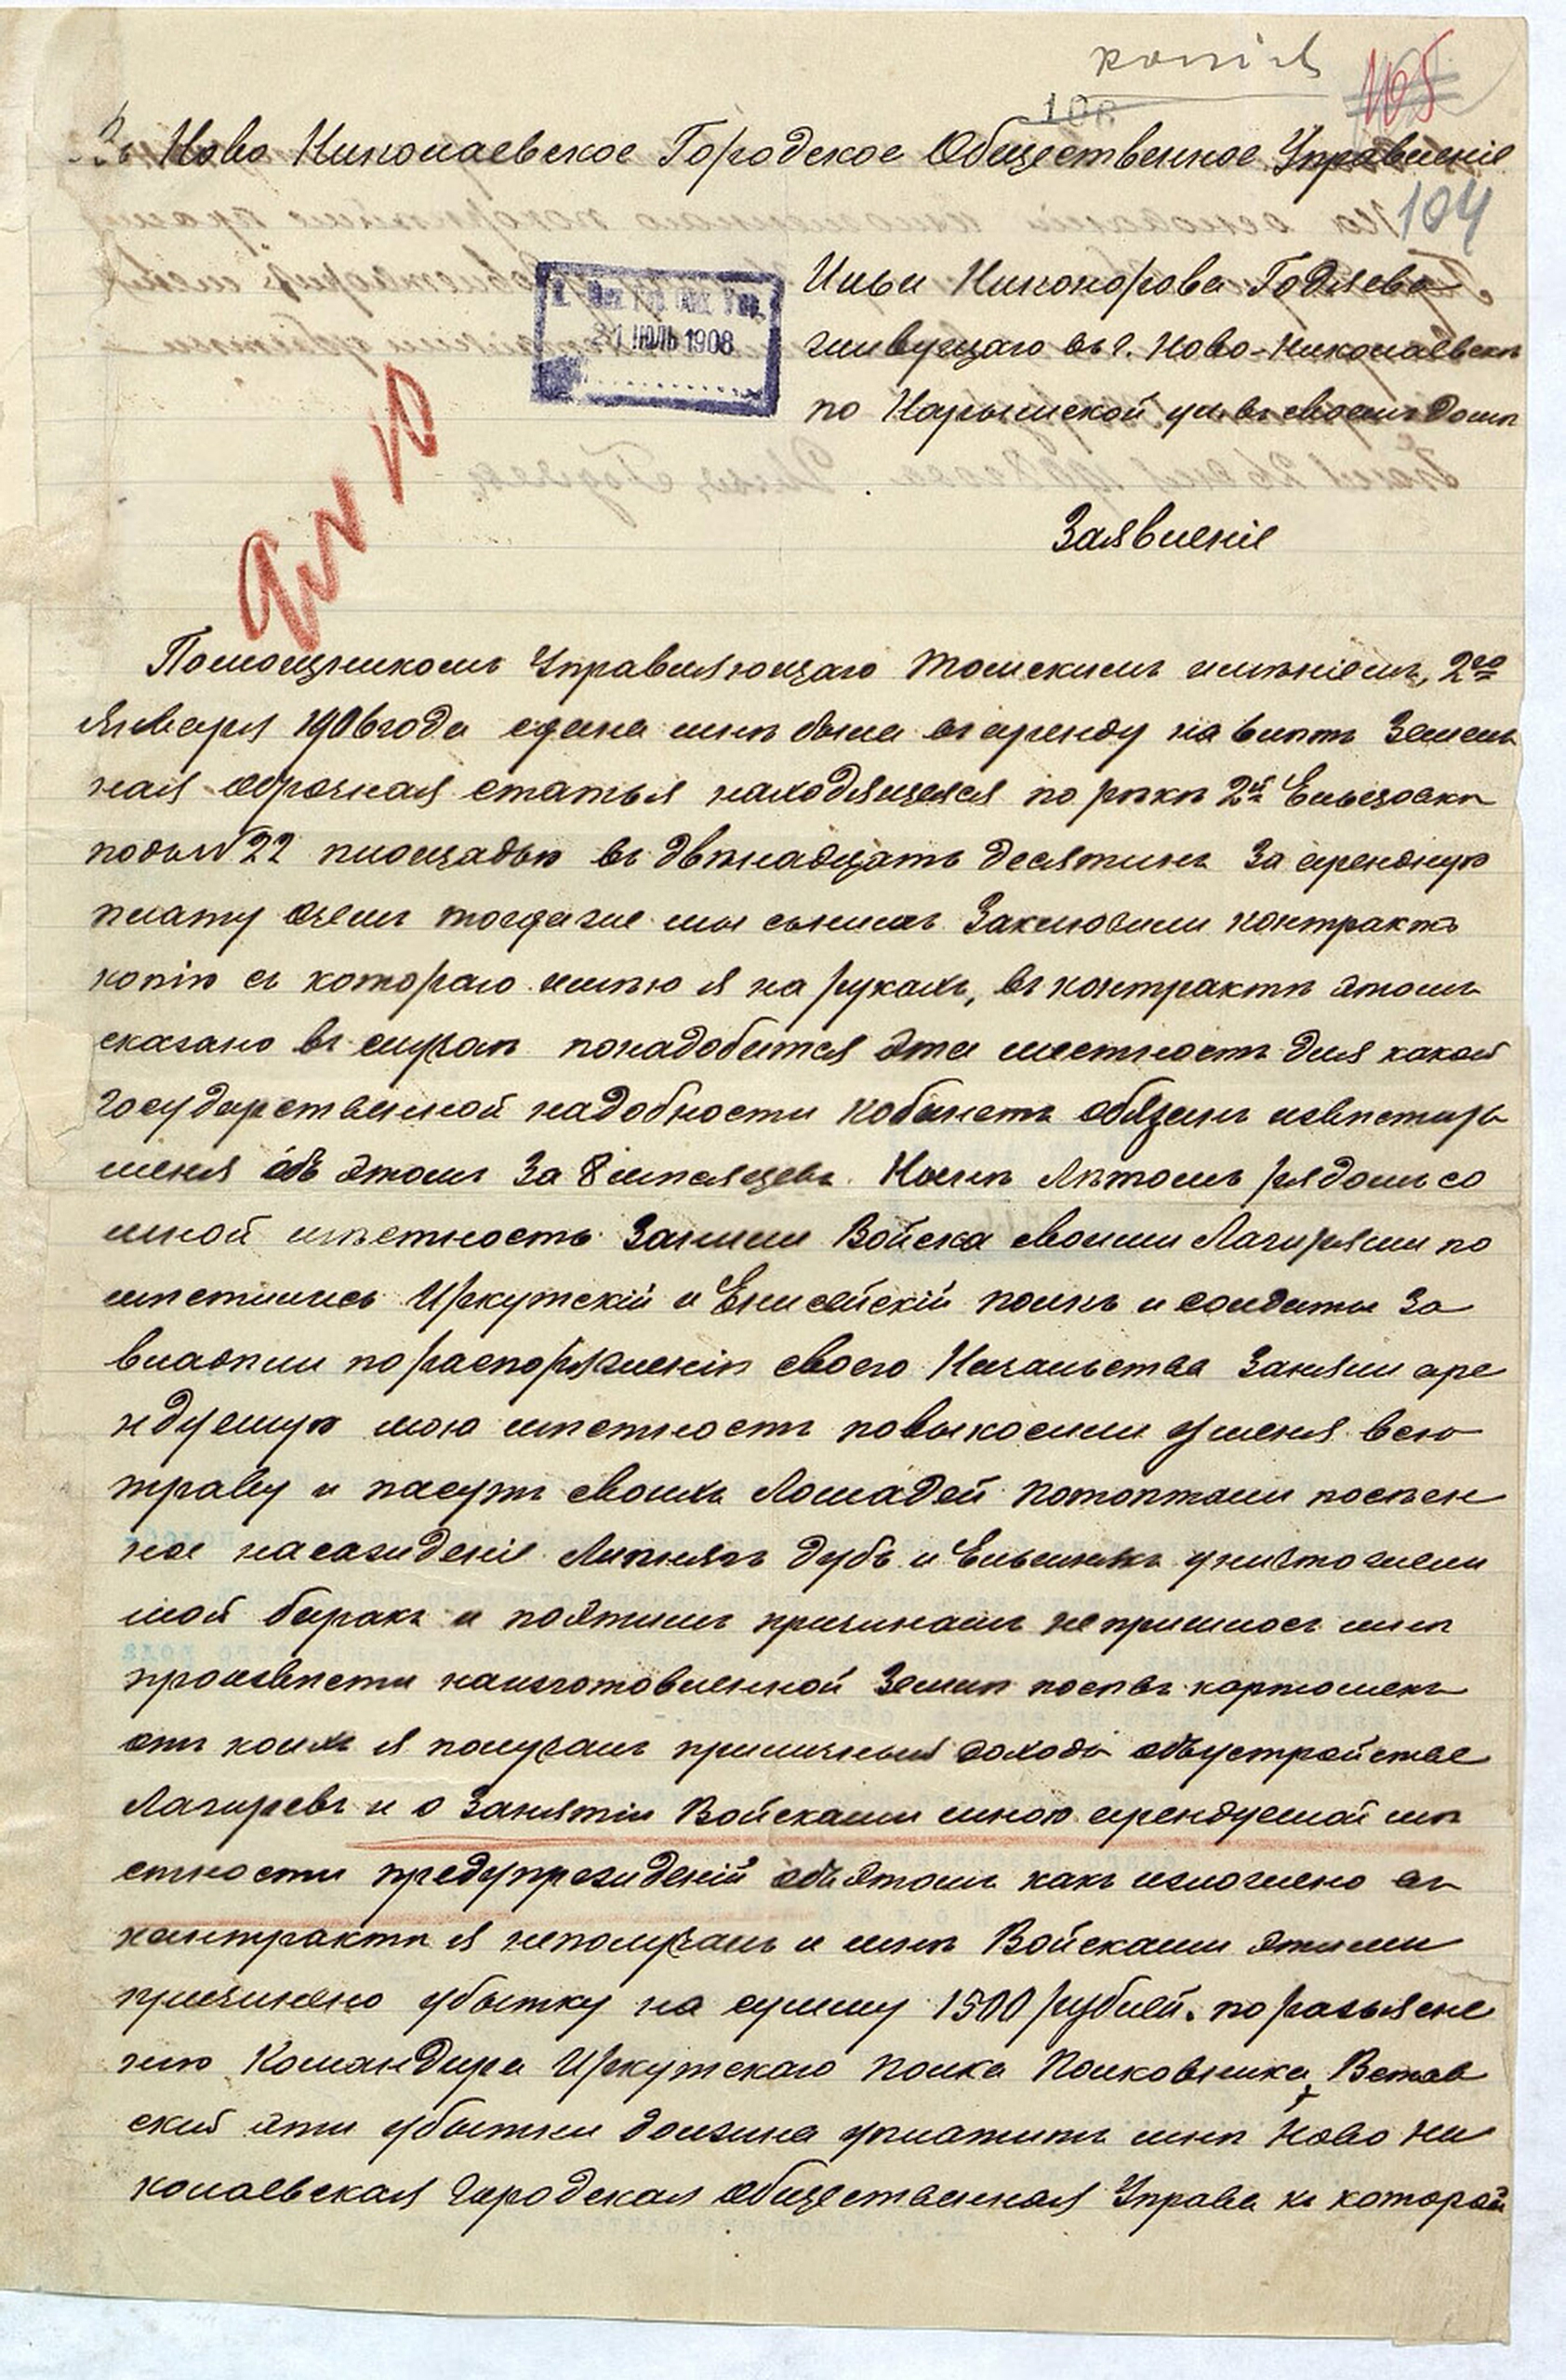 копія
105
108
Въ Ново Николаевское Городское Общественное Управленіе
104
Ильи Никонорова Годяева
живущаго въ г. Ново-Николаевскѣ
по Нарымской ул. въ своемъ домѣ
21 ІЮЛЬ 1908
Заявленіе
Помощникомъ Управляющаго Томскимъ имѣніемъ, 2го
Января 1906 года сдана мнѣ была въ аренду на 6 лѣтъ Земель
ная оброчная статья находящаяся по рѣкѣ 2й Ельцовкѣ
подъ № 22 площадью въ двѣнадцать десятинъ За арендную
плату о чемъ тогда же мы съ нимъ Заключили контрактъ
копію съ котораго имѣю я на рукахъ, въ контрактѣ этомъ
сказано въ случаѣ понадобится эта местность для какой
государственной надобности кабинетъ обязанъ извѣстиРь
меня объ этомъ За 8 мѣсяцевъ. Нынѣ Лѣтомъ рядомъ со
мной мѣстность Заняли Войска своими Лагирями по
мѣстились Иркутскій и Енисейскій полкъ и солдаты За
владѣли по распоряженію своего Начальства Заняли аре
ндуемую мою мѣстность повыкосили у меня всю
траву и пасутъ своихъ Лошадей потоптали посѣен
ное насажденіе Липнякъ дубъ и Ельникъ уничтожили
мой баракъ и поэтимъ причинамъ не пришлось мнѣ
произвести на изготовленной Землѣ посѣвъ картошекъ
отъ коихъ я получалъ приличный доходъ объ устройстве
Лагиревъ и о Занятіи Войсками мною арендуемой мѣ
стности предупрежденій объ этомъ какъ изложено въ
контрактѣ я не получалъ и мнѣ Войсками этими
причинено убытку на сумму 1500 рублей. по разъясне
нію Командира Иркутскаго полка Полковника Встав
ский эти убытки должна уплатить мнѣ Ново Ни
колаевская Городская Общественная Управа къ которой